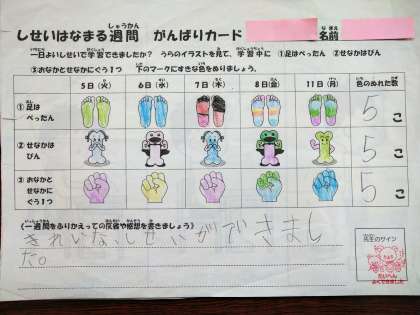 しせいはなまる週間 がんばりカード 名前
一日よいしせいで学習できましたか? うらのイラストを見て、学習中に ①足はぺったん ②せなかはぴん
③おなかとせなかにぐう1つ 下のマークにすきな色をぬりましょう。
5日(火) 6日(水) 7日(木) 8日(金) 11日(月) 色のぬれた数
①足は
ぺったん 5こ
②せなかは
ぴん 5こ
③おなかと
せなかに
ぐう1つ 5こ
(一週間をふりかえっての反省や感想を書きましょう)
きれいな、しせいができまし
た。
先生のサイン
たいへん
よくできました